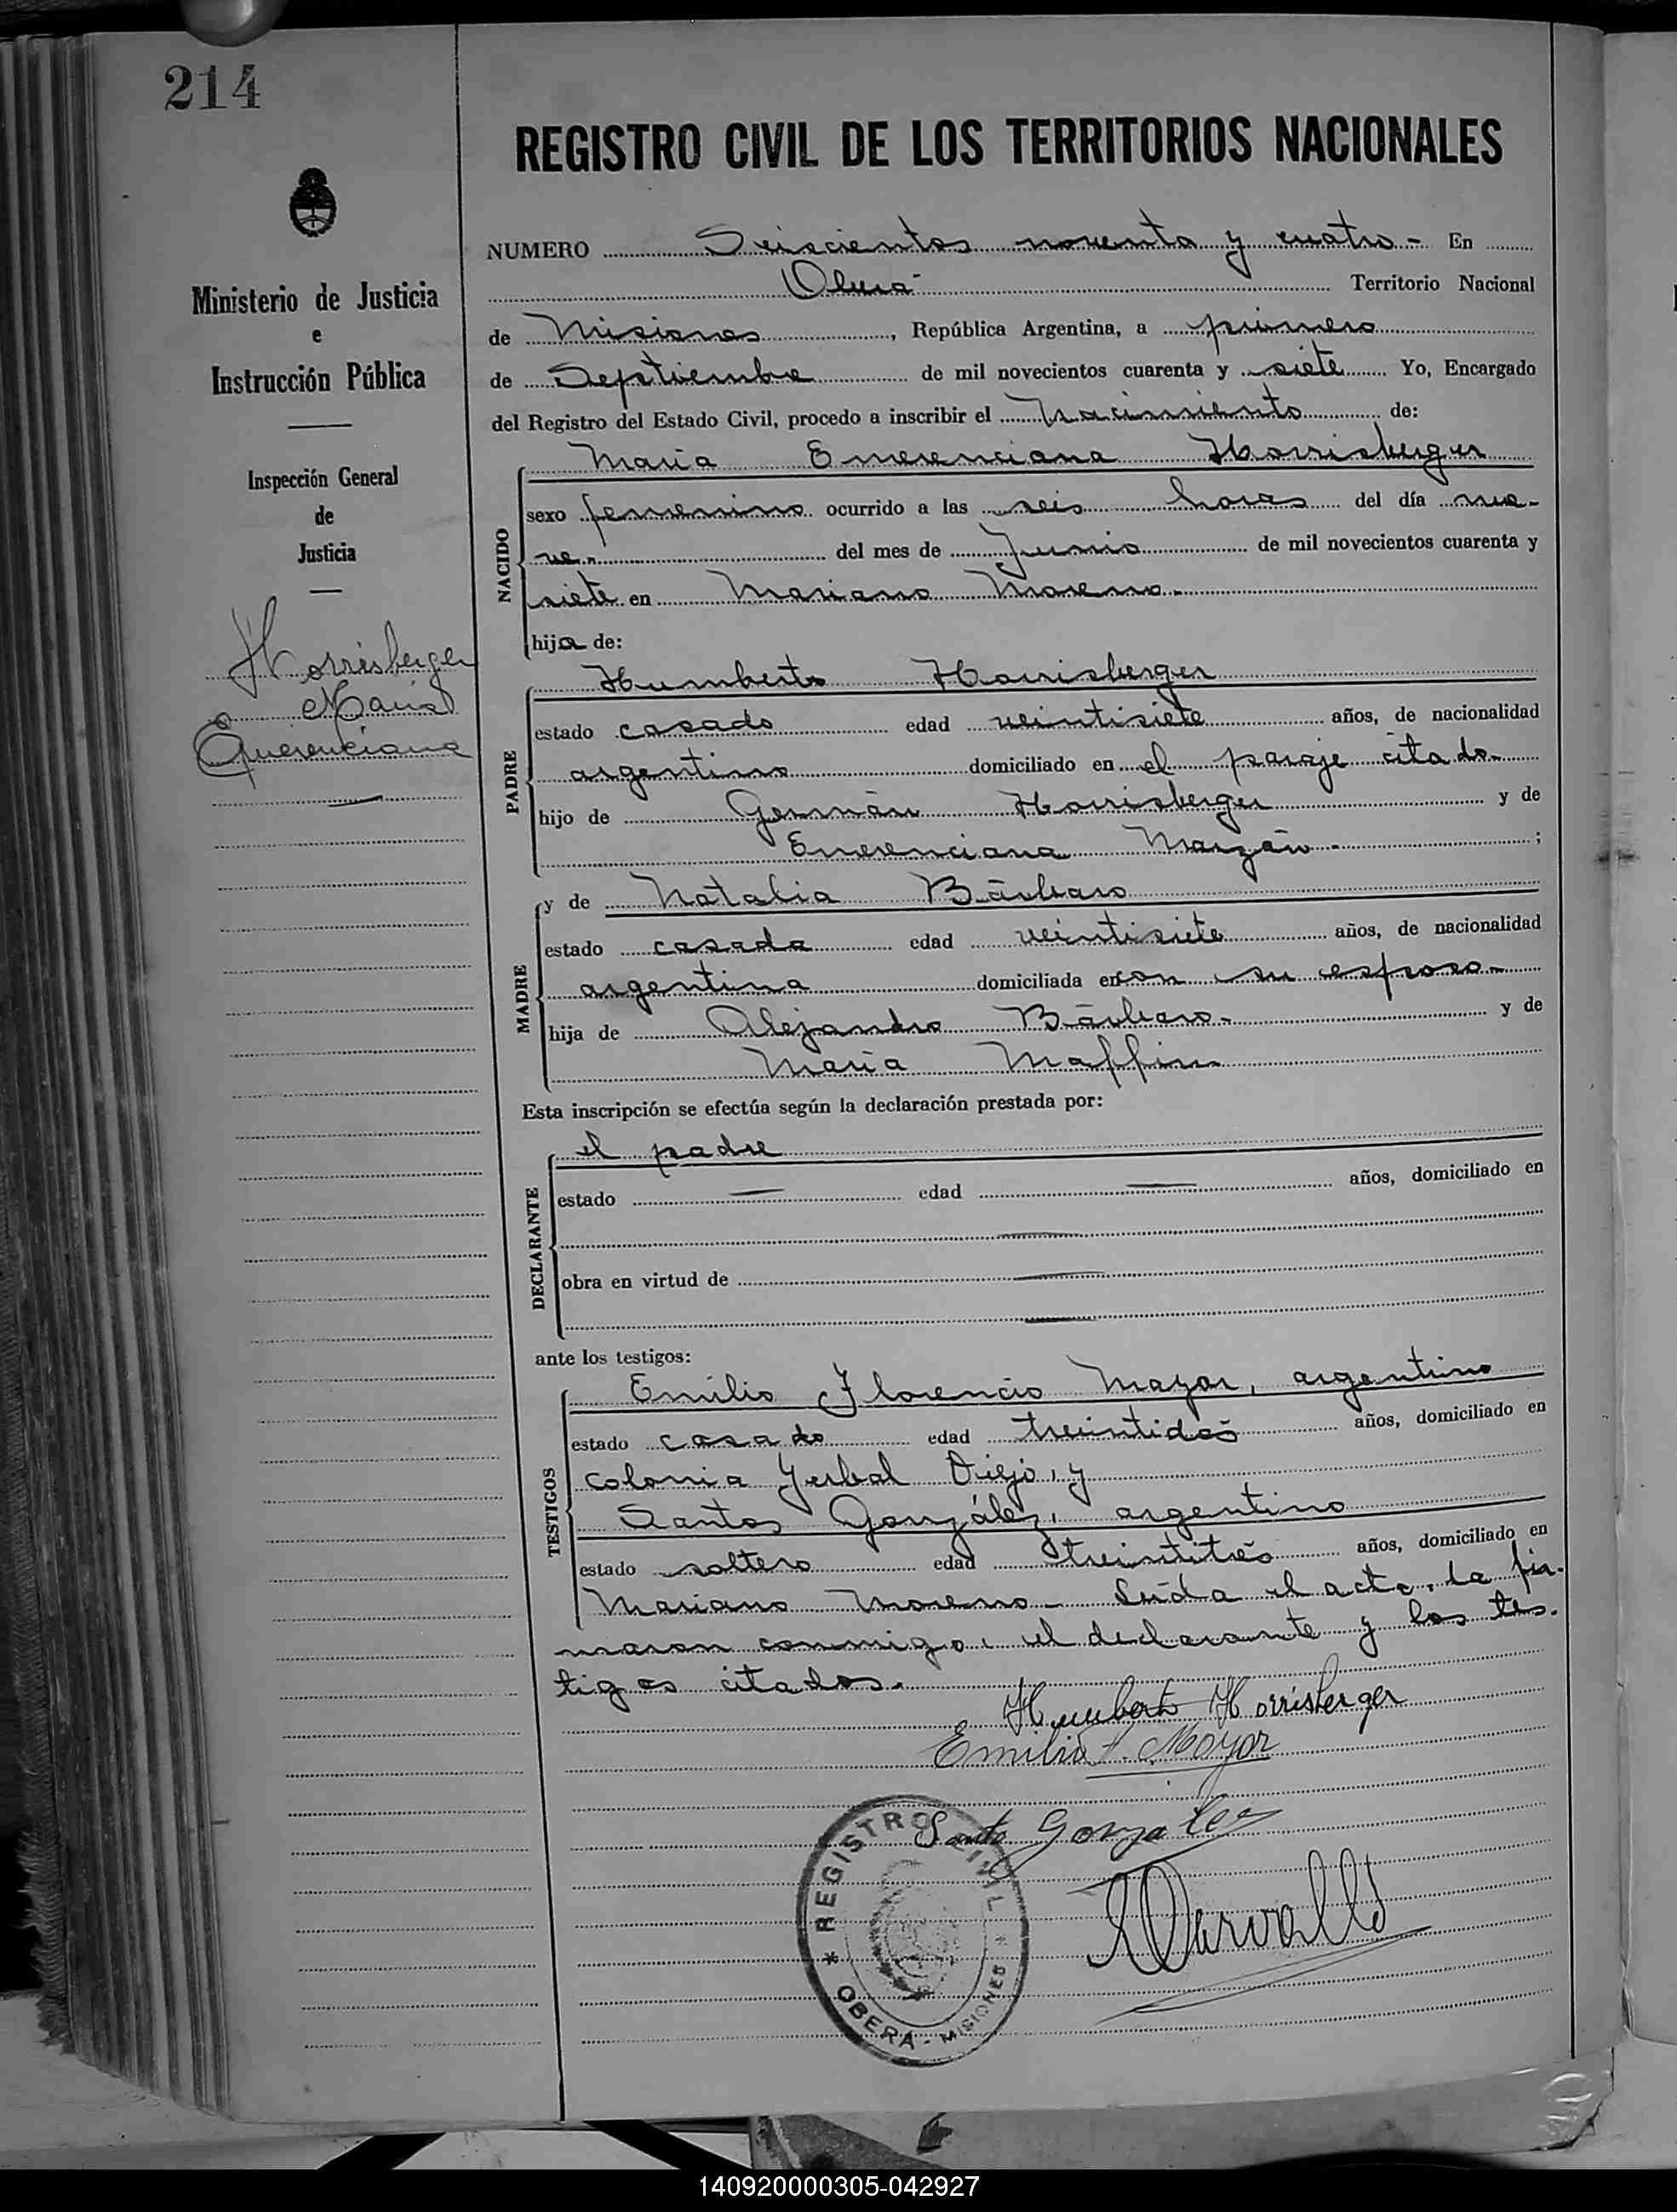 214
REGISTRO CIVIL DE LOS TERRITORIOS NACIONALES
Ministerio de Justicia
e
Instrucción Pública
Inspección General
de
Justicia
Horrisberger
Maria
Emerenciana
NUMERO Seiscientos noventa y cuatro - En
Oberá - Territorio Nacional
de Misiones, República Argentina, a primero
de Septiembre de mil novecientos cuarenta y siete Yo, Encargado
del Registro del Estado Civil, procedo a inscribir el Nacimiento de:
NACIDO
Maria Emerenciana Horrisberger
sexo femenino ocurrido a las seis horas del día nue-
ve - del mes de Junio de mil novecientos cuarenta y
siete en Mariano Moreno -
hija de:
PADRE
Humberto Horrisberger
estado casado edad veintisiete años, de nacionalidad
argentino domiciliado en el paraje citado -
hijo de Germán Horrisberger y de
Emerenciana Marzán - ;
MADRE
y de Natalia Bárbaro
estado casada edad veintisiete años, de nacionalidad
argentina domiciliada en con su esposo -
hija de Alejandro Bárbaro - y de
María Maffini
Esta inscripción se efectúa según la declaración prestada por:
DECLARANTE
el padre
estado — edad — años, domiciliado en
obra en virtud de
ante los testigos:
TESTIGOS
Emilio Florencio Mayor, argentino
estado casado edad treintidós años, domiciliado en
colonia Yerbal Viejo, y
Santos González, argentino
estado soltero edad treintitrés años, domiciliado en
Mariano Moreno - Leída el acta, la fir-
maron conmigo, el declarante y los tes-
tigos citados.
Humberto Horrisberger
Emilio F. Mayor
Santo Gonzalez
* REGISTRO CIVIL *
OBERÁ - MISIONES
140920000305-042927